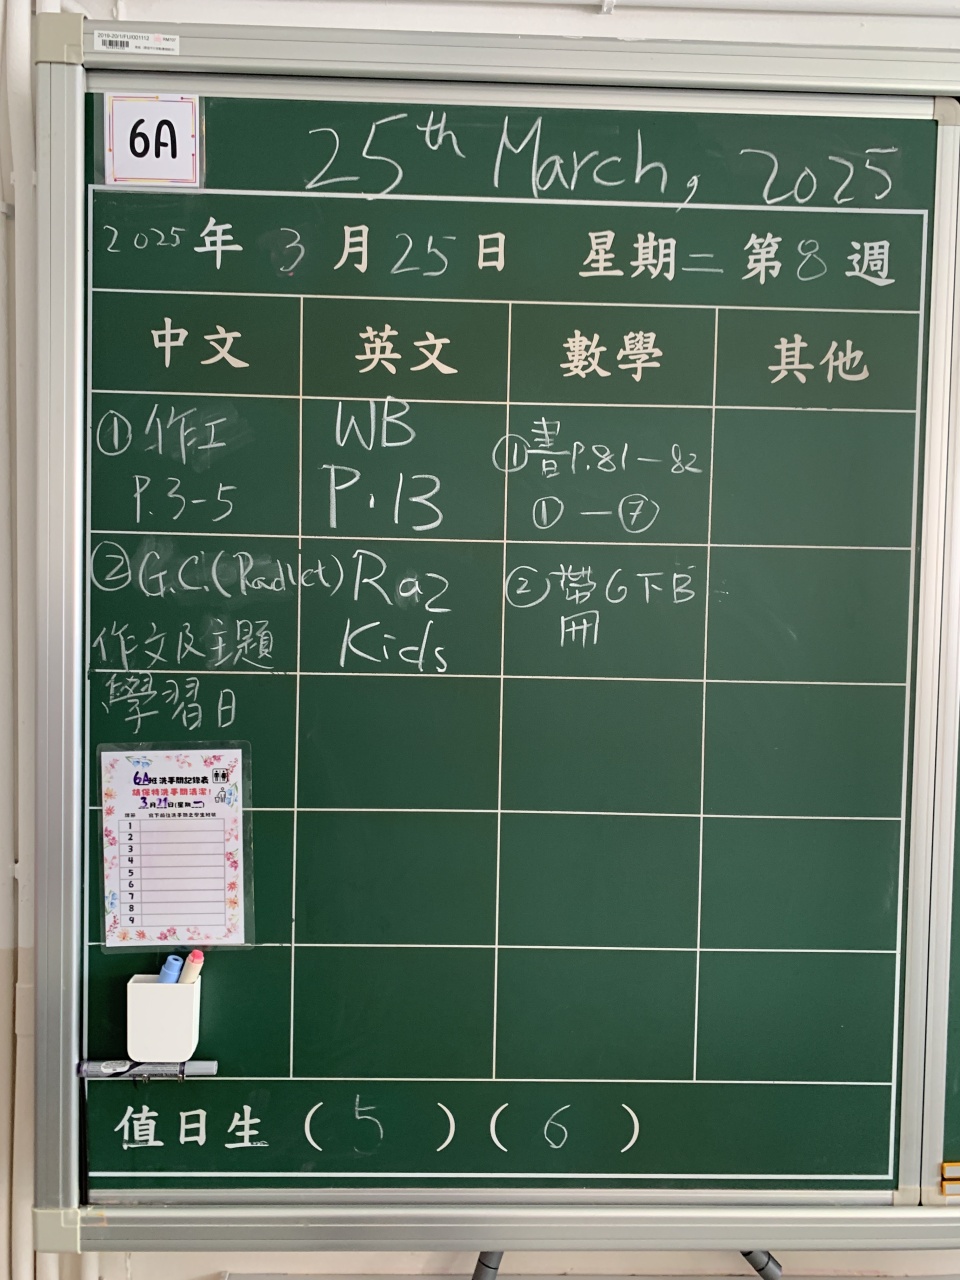 2019-20/1/FU/001112
6A
25th March, 2025
2025年3月25日 星期二 第8週
中文 英文 數學 其他
① 作工
P.3-5
WB
P.13
① 書P.81-82
①-⑦
② G.C.(Padlet)
作文及主題
學習日
Raz
Kids
② 帶6下B
冊
6A班 洗手間記錄表
請保持洗手間清潔!
3月21日(星期一)
1
2
3
4
5
6
7
8
9
值日生 (5) (6)